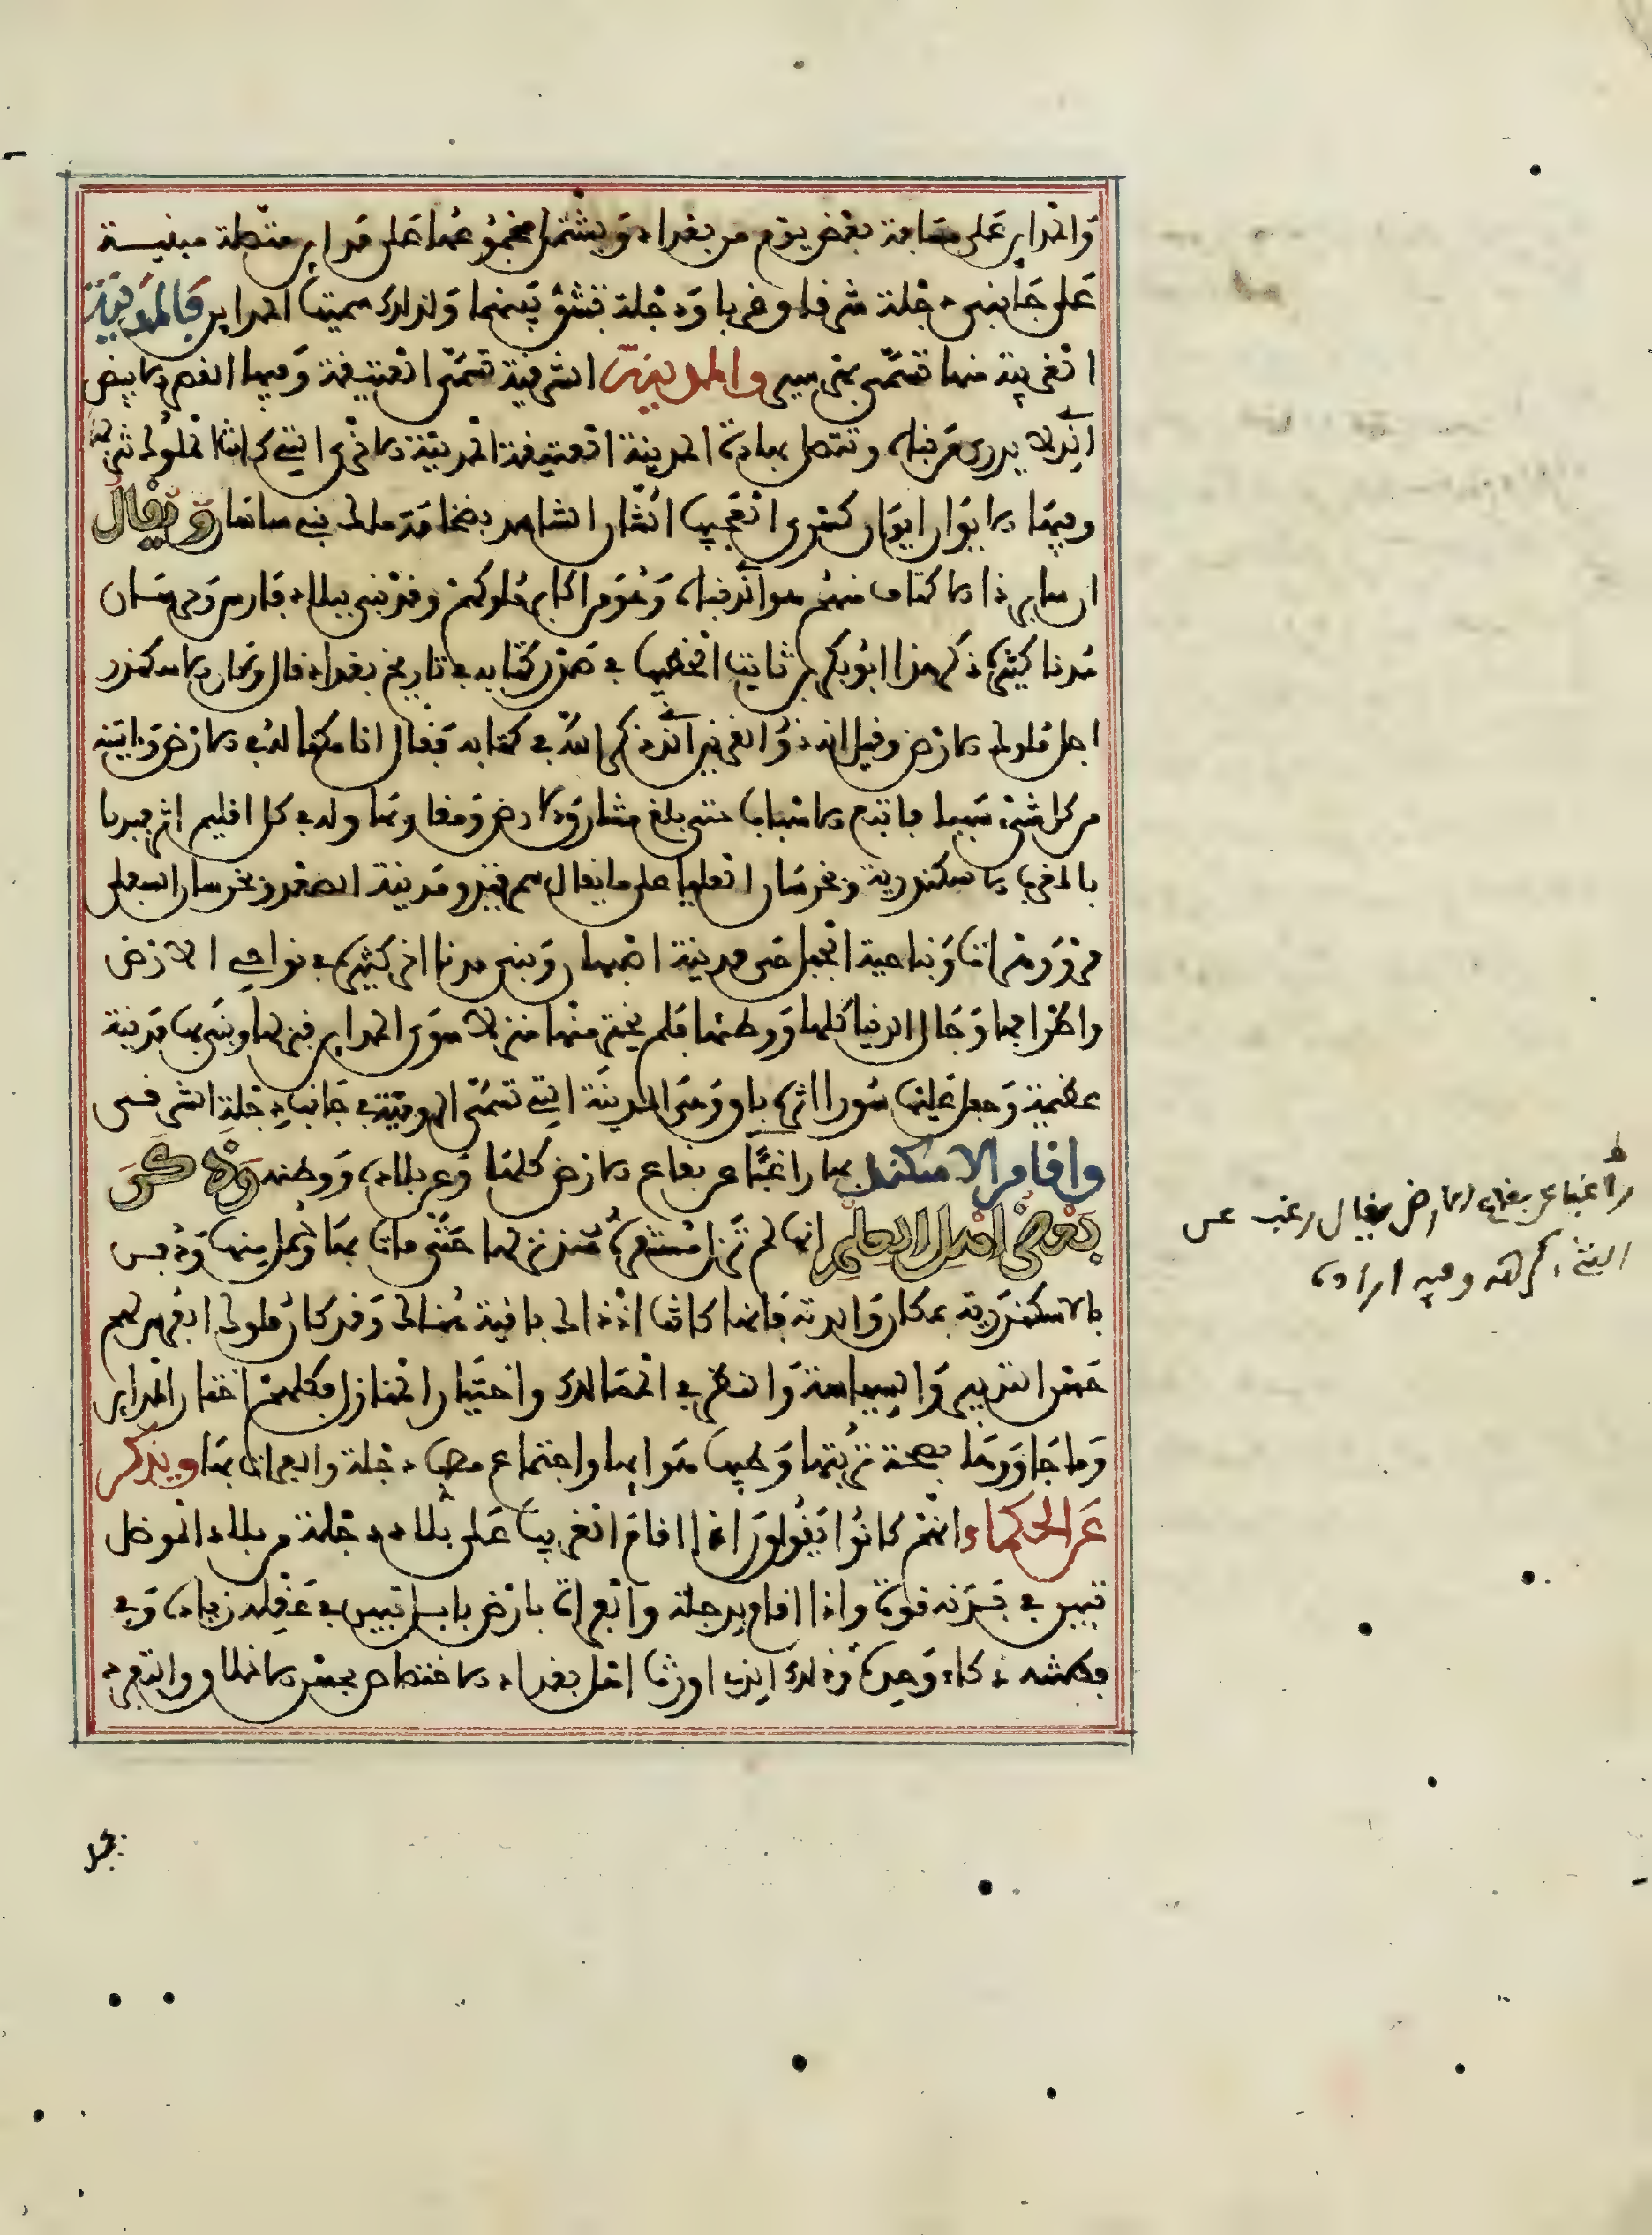 والمداين على مسافة بعض يوم من بغداد ويشتمل مجموعها على مداين متصلة مبنية
على جانبي دجلة شرقا وغربا ودجلة تشق بينهما ولذلك سميت المداين فالمدينة
الغربية منها تسمى بهرسير والمدينة الشرقية تسمى العتيقة وفيها القصر الابيض
الذي لا يدرى من بناه وتتصل بهاذه المدينة العتيقة المدينة الاخرى التي كانت الملوك تنزلها
وفيها الايوان ايوان كسرى العجيب الشان الشاهد بضخامة ملك بني ساسان ويقال
ان سابور ذا الاكتاف منهم هو الذي بناه وهو من اكابر ملوكهم وقد بنى ببلاد فارس وخراسان
مدنا كثيرة ذكر هذا ابو بكر بن ثابت الخطيب في صدر كتابه في تاريخ بغداد قال وكان الاسكندر
اجل ملوك الارض وقيل انه ذو القرنين الذي ذكر الله في كتابه فقال انا مكنا له في الارض وءاتينه
من كل شيء سببا فاتبع الاسباب حتى بلغ مشارق الارض ومغاربها وله في كل اقليم اثر فبنى
بالمغرب الاسكندرية وبخرسان العليا على ما يقال سمرقند ومدينة الصغد وبخرسان السفلى
مرو وهراة وبناحية الجبل جي مدينة اصبهان وبنى مدنا اخر كثيرة في نواحي الارض
واطرافها وجال الدنيا كلها ووطئها فلم يختر منها منزلا سوى المداين فنزلها وبنى بها مدينة
عظيمة وجعل عليها سورا اثره باق وهي المدينة التي تسمى الرومية في جانب دجلة الشرقي
واقام الاسكندر بها راغبا عن بقاع الارض كلها وعن بلاده ووطنه وذكر
بعض اهل العلم انها لم تزل مستقره منذ نزلها حتى مات بها وحمل منها ودفن
بالاسكندرية بمكان والدته فانها كانت اذ ذاك باقية هناك وقد كان ملوك الفرس لهم
حسن التدبير والسياسة والنظر في الممالك واختيار المنازل فكلهم اختار المداين
وما جاورها لصحة تربتها وطيب هوايها واجتماع مصب دجلة والفرات بها ويذكر
عن الحكماء انهم كانوا يقولون اذا اقام الغريب على بلاد دجلة من بلاد الموصل
تبين في بدنه قوة واذا اقام بين دجلة والفرات بارض بابل تبين في عقله زيادة وفي
فطنته ذكاء وحدة وذلك الذي اورث اهل بغداد الاختصاص بحسن الاخلاق والتفرد
راغبا عن بقاع الارض يقال رغب عن
الشيء كرهه وفيه اراده